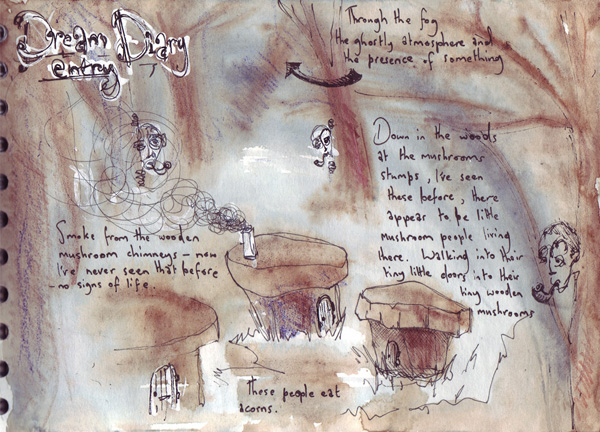 Dream Diary
entry
Through the fog
the ghostly atmosphere and
the presence of something
Down in the woods
at the mushrooms
stumps, I've seen
these before, there
appear to be little
mushroom people living
there. Walking into their
tiny little doors into their
tiny wooden
mushrooms
Smoke from the wooden
mushroom chimneys – now
I've never seen that before
– no signs of life.
These people eat
acorns.